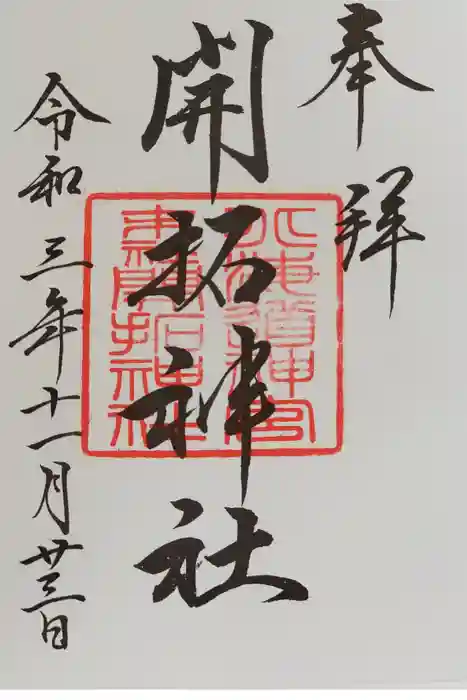 奉拝
開拓神社
令和三年十一月廿三日
北海道神宮
末社開拓神社